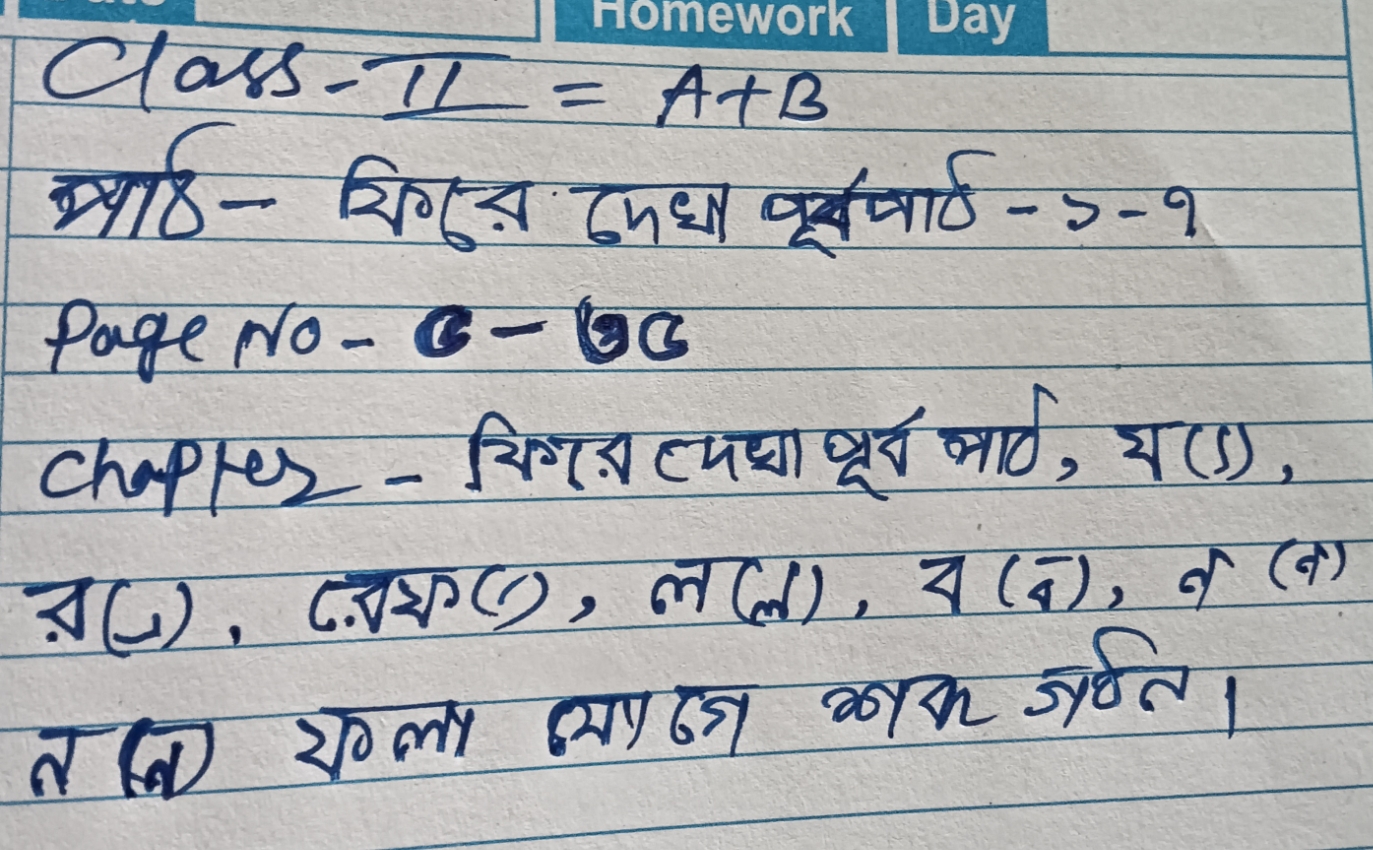 Homework Day
Class - II = A+B
পাঠ - ফিরে দেখা পূর্বপাঠ - ১ - ৭
Page No - ৫ - ৩৫
Chapter - ফিরে দেখা পূর্ব পাঠ, য (্য),
র (্র), রেফ (র্), ল (্ল), ব (্ব), ণ (্ণ)
ন (্ন) ফলা যোগে শব্দ গঠন।